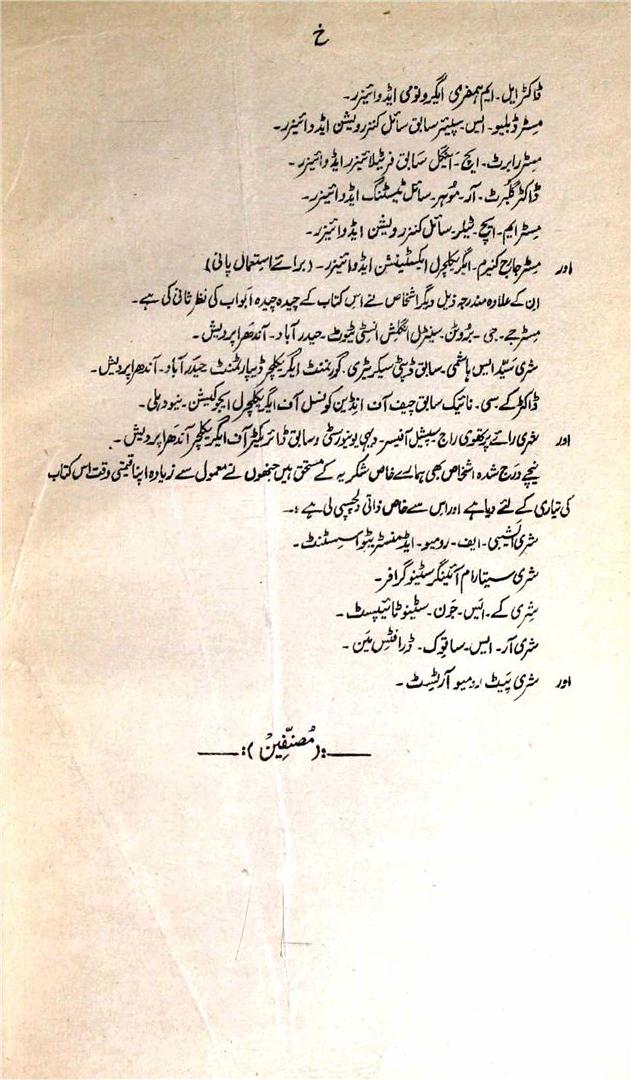 خ
ڈاکٹر ایل۔ ایم ہمفری ایگرونومی ایڈوائیزر۔
مسٹر ڈبلیو۔ ایس۔ سپئیر سابق سائل کنزرویشن ایڈوائیزر۔
مسٹر رابرٹ۔ ایچ۔ اینگل سابق فرٹیلائیزر ایڈوائیزر۔
ڈاکٹر گلبرٹ۔ آر۔ موہر۔ سائل ٹیسٹنگ ایڈوائیزر۔
مسٹر ایم۔ ایچ۔ ٹیلر۔ سائل کنزرویشن ایڈوائیزر۔
اور مسٹر جارج کنیرم۔ ایگریکلچرل ایکسٹینشن ایڈوائیزر۔ (برائے استعمال پانی)
ان کے علاوہ مندرجہ ذیل دیگر اشخاص نے اس کتاب کے چیدہ چیدہ ابواب کی نظر ثانی کی ہے۔
مسٹر جے۔ جی۔ بروٹن۔ سینٹرل انگلش انسٹی ٹیوٹ۔ حیدر آباد۔ آندھرا پردیش۔
شری سیّد ایس ہاشمی۔ سابق ڈپٹی سیکریٹری۔ گورنمنٹ ایگریکلچر ڈیپارٹمنٹ حیدر آباد۔ آندھرا پردیش۔
ڈاکٹر کے سی۔ نائیک سابق چیف آف انڈین کونسل آف ایگریکلچرل ایجوکیشن۔ نیو دہلی۔
اور شری رائے پرتھوی راج سپیشل آفیسر۔ دیہی یونیورسٹی و سابق ڈائریکٹر آف ایگریکلچر آندھرا پردیش۔
نیچے درج شدہ اشخاص بھی ہمارے خاص شکریہ کے مستحق ہیں جنھوں نے معمول سے زیادہ اپنا قیمتی وقت اس کتاب
کی تیاری کے لئے دیا ہے اور اس سے خاص ذاتی دلچسپی لی ہے :۔
شری ایف۔ رومیو۔ ایڈمنسٹریٹو اسسٹنٹ۔
شری سیتارام آئینگر سٹینوگرافر۔
شری کے۔ ایس۔ جون۔ سٹینو ٹائیپسٹ۔
شری آر۔ ایس۔ ساتوک۔ ڈرافٹس مین۔
اور شری پیٹ رومیو آرٹسٹ۔
——:(مُصنّفِین):——